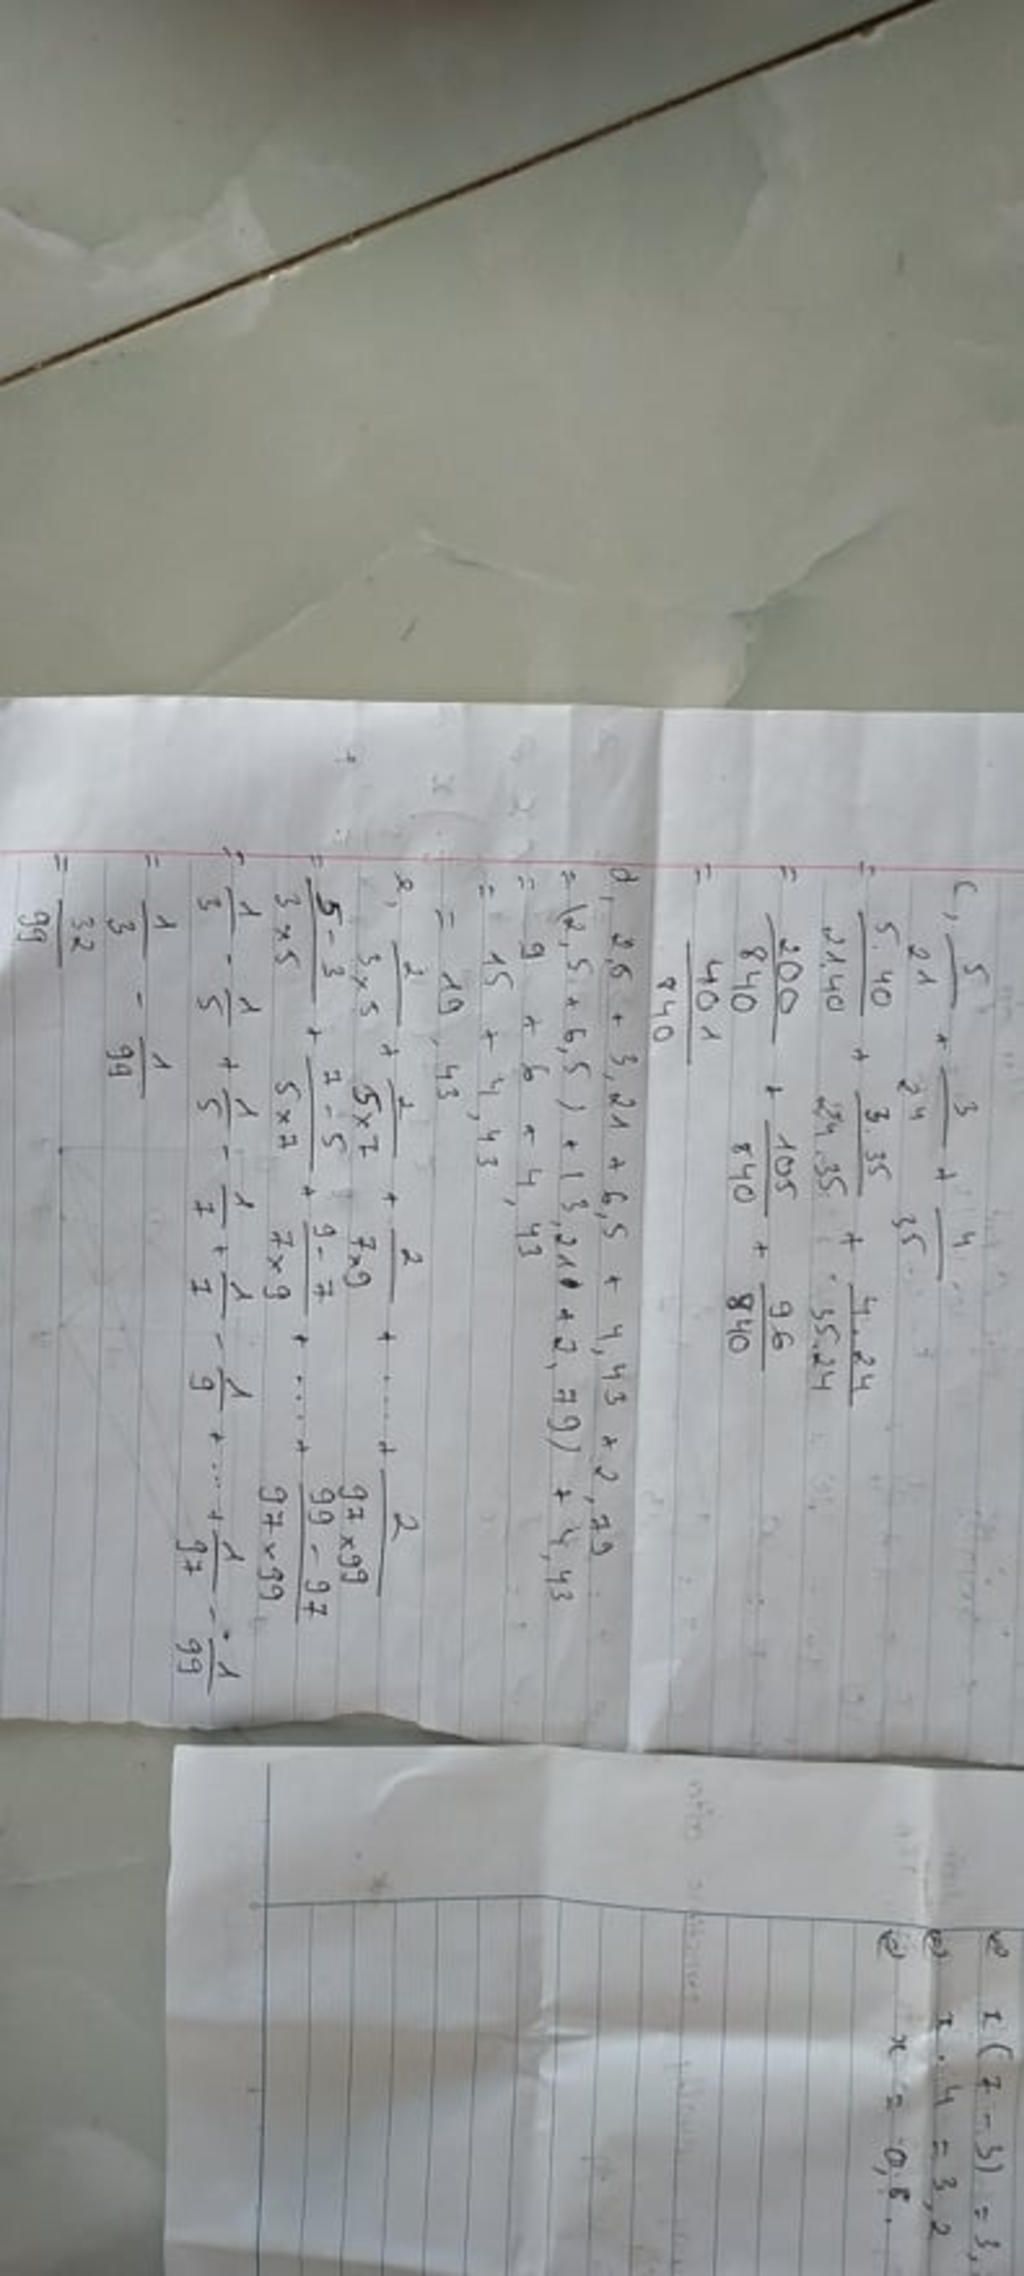 c, 5/21 + 3/24 + 4/35
= 5.40/21.40 + 3.35/24.35 + 4.24/35.24
= 200/840 + 105/840 + 96/840
= 401/840
d, 2,5 + 3,21 + 6,5 + 4,43 + 2,79
= (2,5 + 6,5) + (3,21 + 2,79) + 4,43
= 9 + 6 + 4,43
= 15 + 4,43
= 19,43
e, 2/3×5 + 2/5×7 + 2/7×9 + ..... + 2/97×99
= 5-3/3×5 + 7-5/5×7 + 9-7/7×9 + .... + 99-97/97×99
= 1/3 - 1/5 + 1/5 - 1/7 + 1/7 - 1/9 + .... + 1/97 - 1/99
= 1/3 - 1/99
= 32/99
x(7-3) = 3,
x.4 = 3,2
x = 0,8.